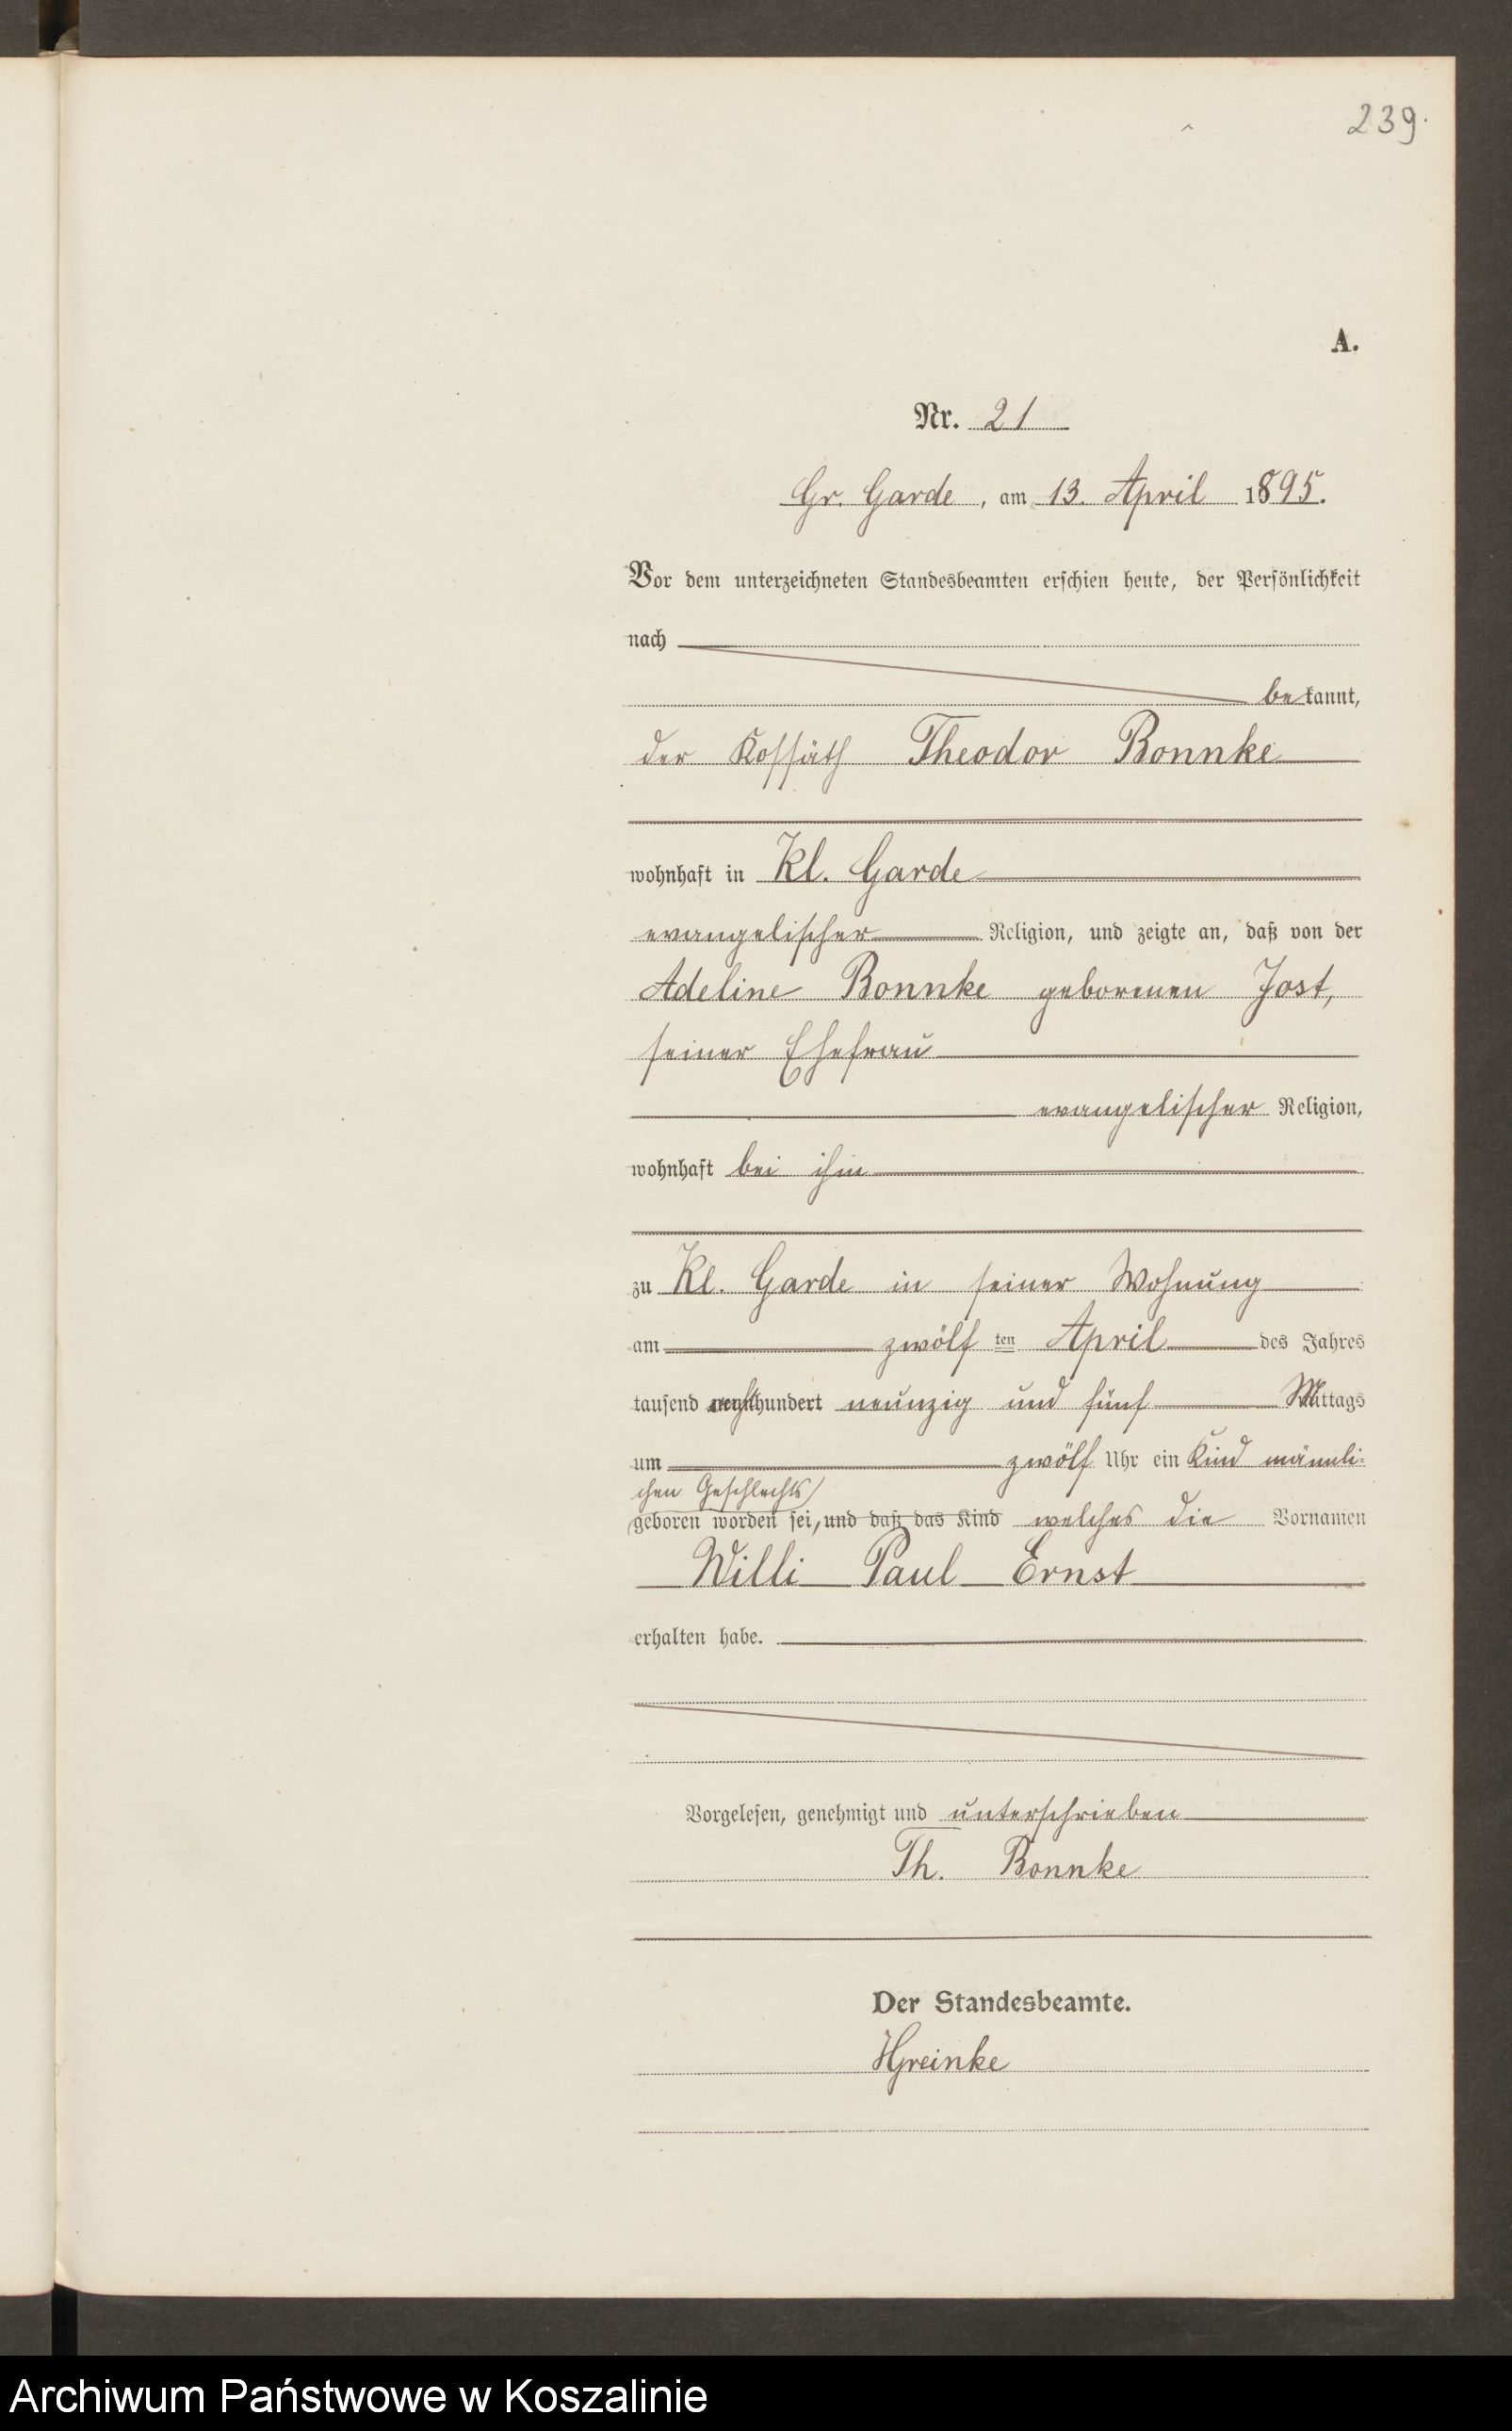 239.
A.
Nr. 21
Gr. Garde, am 13. April 1895.
Vor dem unterzeichneten Standesbeamten erschien heute, der Persönlichkeit
nach
bekannt,
der Kossäth Theodor Bonnke
wohnhaft in Kl. Garde
evangelischer Religion, und zeigte an, daß von der
Adeline Bonnke geborenen Jost,
seiner Ehefrau
evangelischer Religion,
wohnhaft bei ihm
zu Kl. Garde in seiner Wohnung
am zwölf ten April des Jahres
tausend achthundert neunzig und fünf Mittags
um zwölf Uhr ein Kind männli-
chen Geschlechts
geboren worden sei, und daß das Kind welches die Vornamen
Willi Paul Ernst
erhalten habe.
Vorgelesen, genehmigt und unterschrieben
Th. Bonnke
Der Standesbeamte.
HGreinke
Archiwum Państwowe w Koszalinie